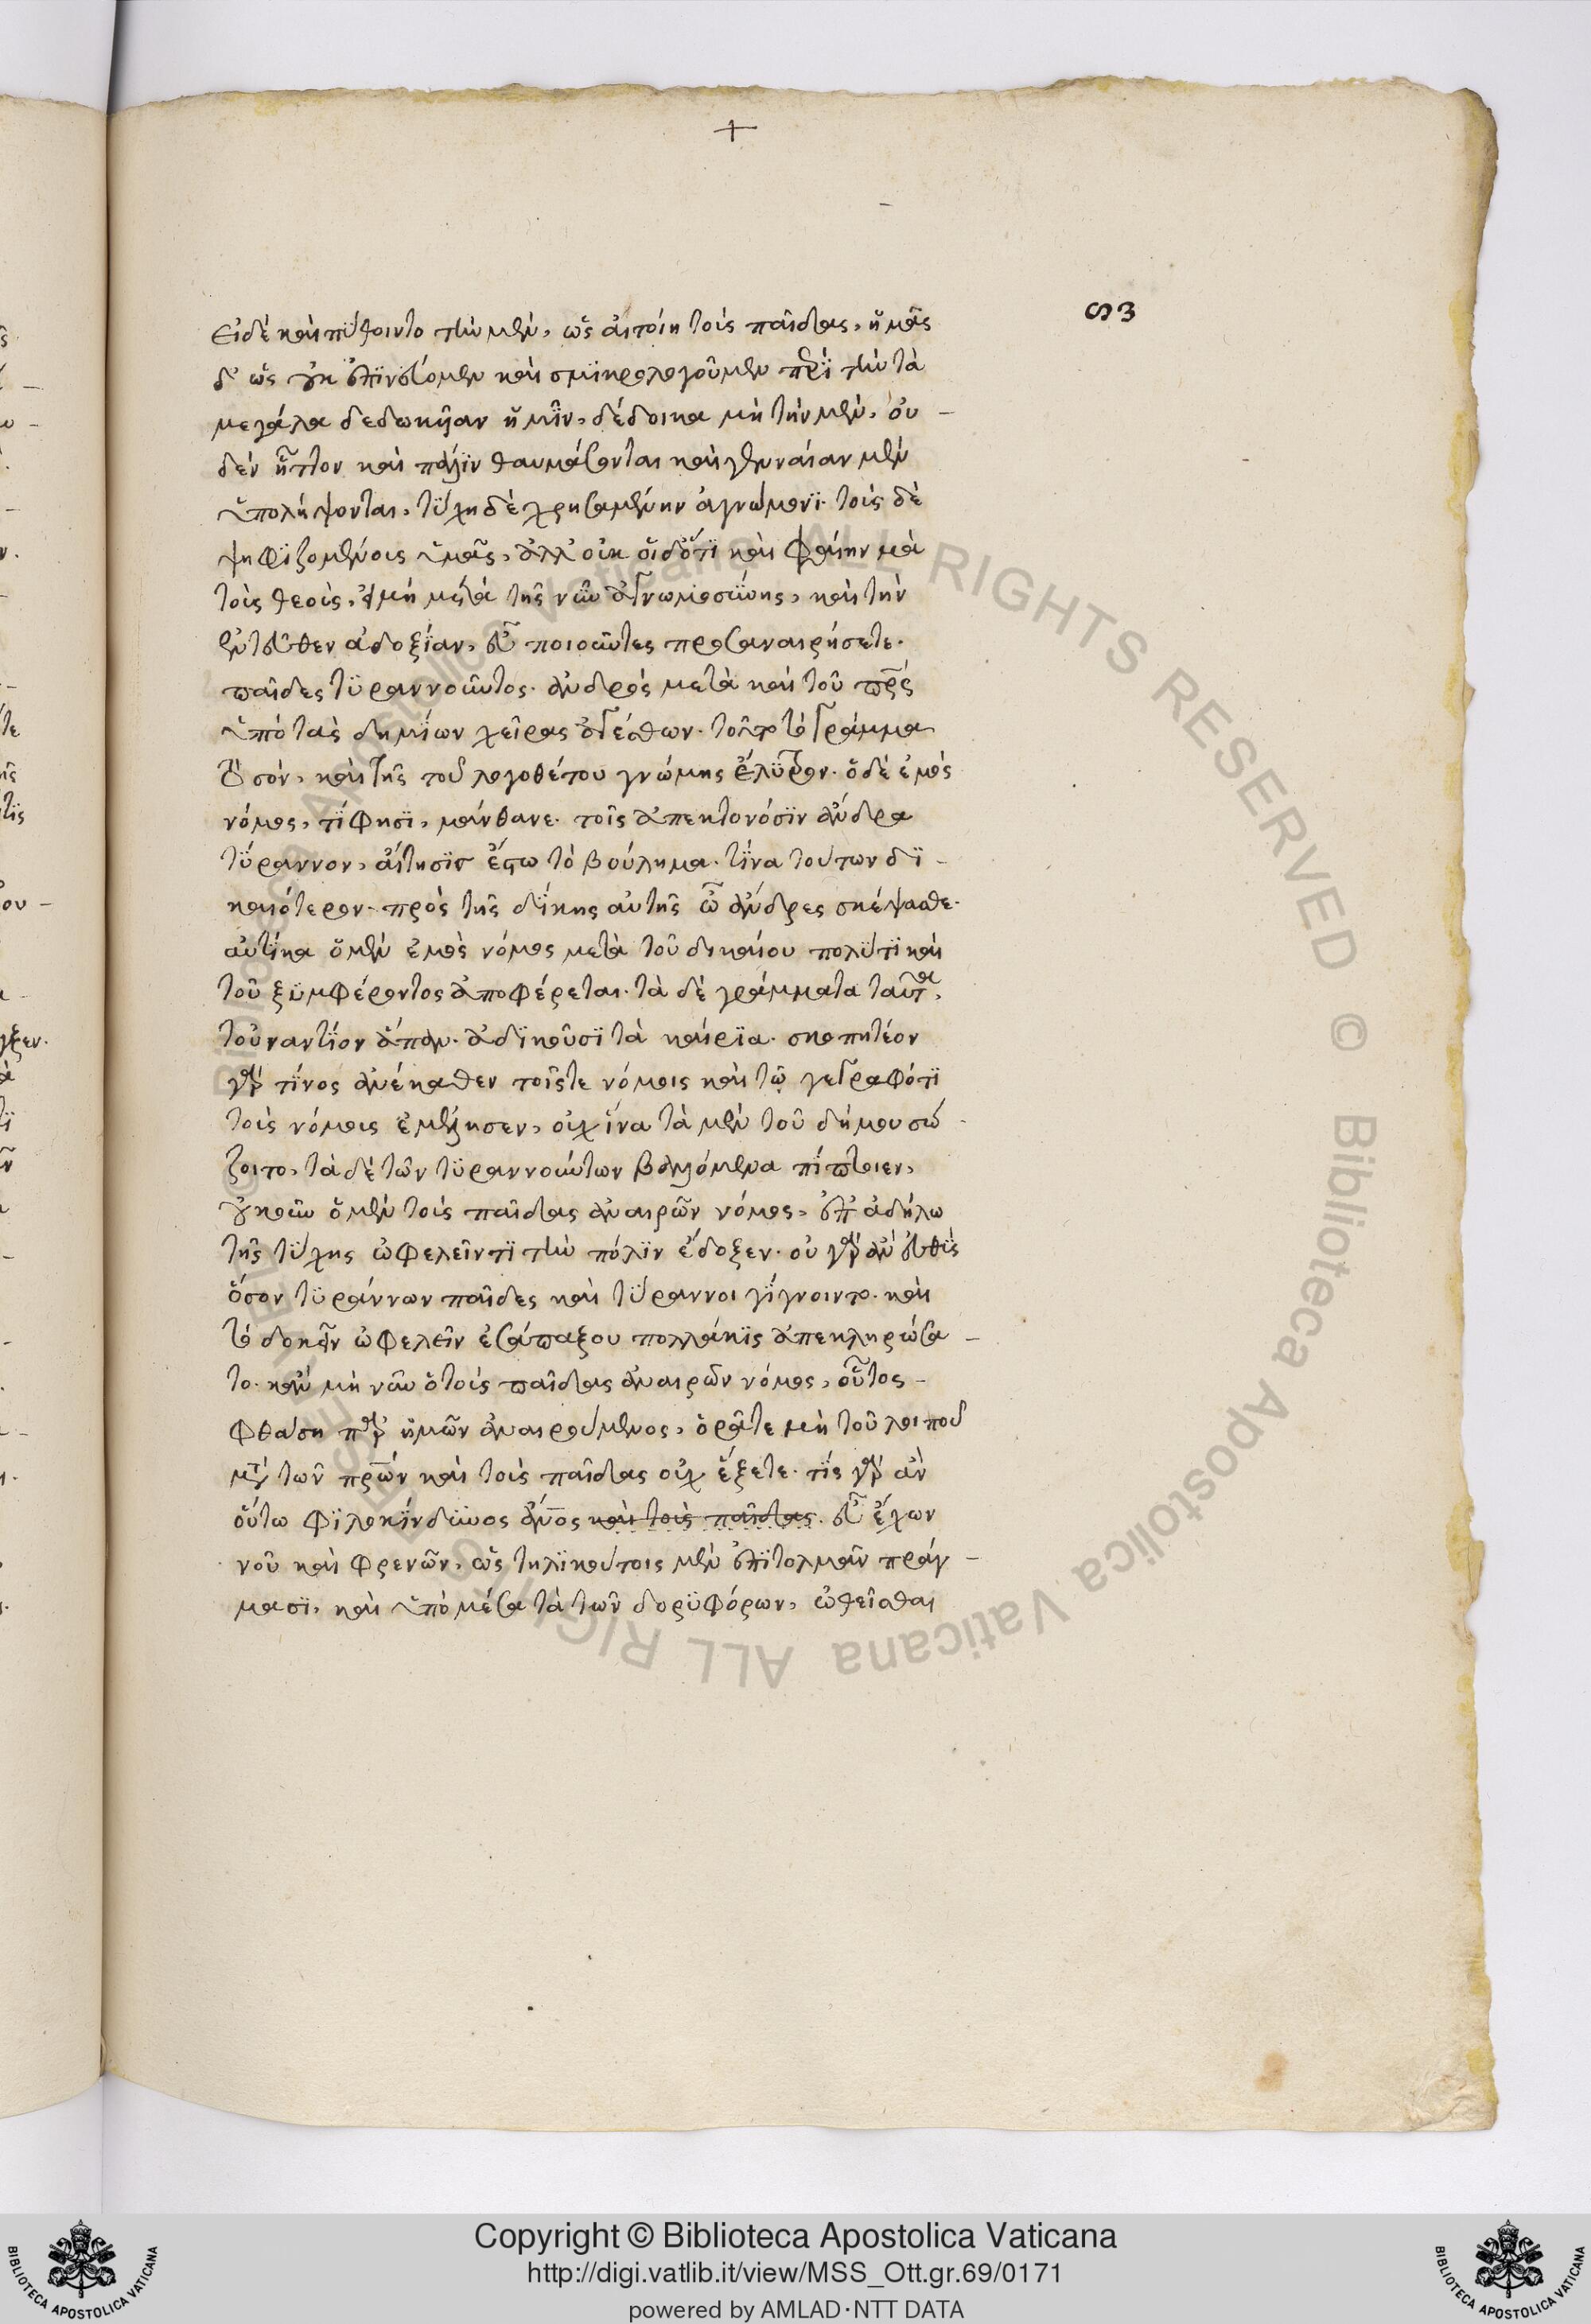 +
εἰ δὲ καὶ πύθοιντο τὴν μὲν, ὡς αἰτοίη τοὺς παῖδας, ἡμᾶς
δ' ὡς οὐκ ἐπινεύομεν καὶ σμικρολογοῦμεν περὶ τὴν τὰ
μεγάλα δεδωκυῖαν ἡμῖν, δέδοικα μὴ τὴν μὲν, οὐ-
δὲν ἧττον καὶ πάλιν θαυμάσονται καὶ γενναίαν μὲν
ὑπολήψονται, τύχῃ δὲ χρησαμένην ἀγνώμονι. τοῖς δὲ
ψηφιζομένοις ὑμᾶς, ἀλλ' οὐκ οἶδ' ὅτι καὶ φαίην μὰ
τοὺς θεοὺς, εἰ μὴ μετὰ τῆς νῦν ἀγνωμοσύνης, καὶ τὴν
ἐντεῦθεν ἀδοξίαν, εὖ ποιοῦντες προσαναιρήσετε.
παῖδες τυραννοῦντος ἀνδρὸς μετὰ καὶ τοῦ πρς
ὑπὸ τὰς δημίων χεῖρας ἀγέσθων. τοῦτο τὸ γράμμα
σὸν, καὶ τῆς τοῦ λογοθέτου γνώμης ἔλυτρον. ὁ δὲ ἐμὸς
νόμος, τί φησι, μάνθανε. τοῖς ἀπεκτονόσιν ἄνδρα
τύραννον, αἴτησις ἔστω τὸ βούλημα. τίνα τούτων δι-
καιότερον. πρὸς τῆς δίκης αὐτῆς ὦ ἄνδρες σκέψασθε.
αὐτίκα ὁ μὲν ἐμὸς νόμος μετὰ τοῦ δικαίου πολύ τι καὶ
τοῦ ξυμφέροντος ἀποφέρεται. τὰ δὲ γράμματα ταῦτα,
τοὐναντίον ἅπαν. ἀδικοῦσι τὰ καίρια. σκοπητέον
γὰρ τίνος ἀνέκαθεν τοῖς τε νόμοις καὶ τῷ γεγραφότι
τοὺς νόμους ἐμέλησεν, οὐχ ἵνα τὰ μὲν τοῦ δήμου σώ-
ζοιτο, τὰ δὲ τῶν τυραννούντων βουλόμενα πίπτοιεν,
οὐκοῦν ὁ μὲν τοὺς παῖδας ἀναιρῶν νόμος, ἐπ' ἀδήλῳ
τῆς τύχης ὠφελεῖν τι τὴν πόλιν ἔδοξεν. οὐ γὰρ ἂν εὐθὺς
ὅσον τυράννων παῖδες καὶ τύραννοι γίγνοιντο. καὶ
τὸ δοκεῖν ὠφελεῖν ἐσάπαξ οὐ πολλάκις ἀπεκληρώσα-
το. κἂν μὴ νῦν ὁ τοὺς παῖδας ἀναιρῶν νόμος, οὗτος
φθάσῃ παρ' ἡμῶν ἀναιρούμενος, ὁρᾶτε μὴ τοῦ λοιποῦ
μετὰ τῶν πρων καὶ τοὺς παῖδας οὐχ ἕξετε. τίς γὰρ ἂν
οὕτω φιλοκίνδυνος ἀνος καὶ τοὺς παῖδας. εὖ ἔχων
νοῦ καὶ φρενῶν, ὡς τηλικούτοις μὲν ἐπιτολμᾶν πράγ-
μασι, καὶ ὑπὸ μέσα τὰ τῶν δορυφόρων, ὠθεῖσθαι
Copyright © Biblioteca Apostolica Vaticana
http://digi.vatlib.it/view/MSS_Ott.gr.69/0171
powered by AMLAD·NTT DATA